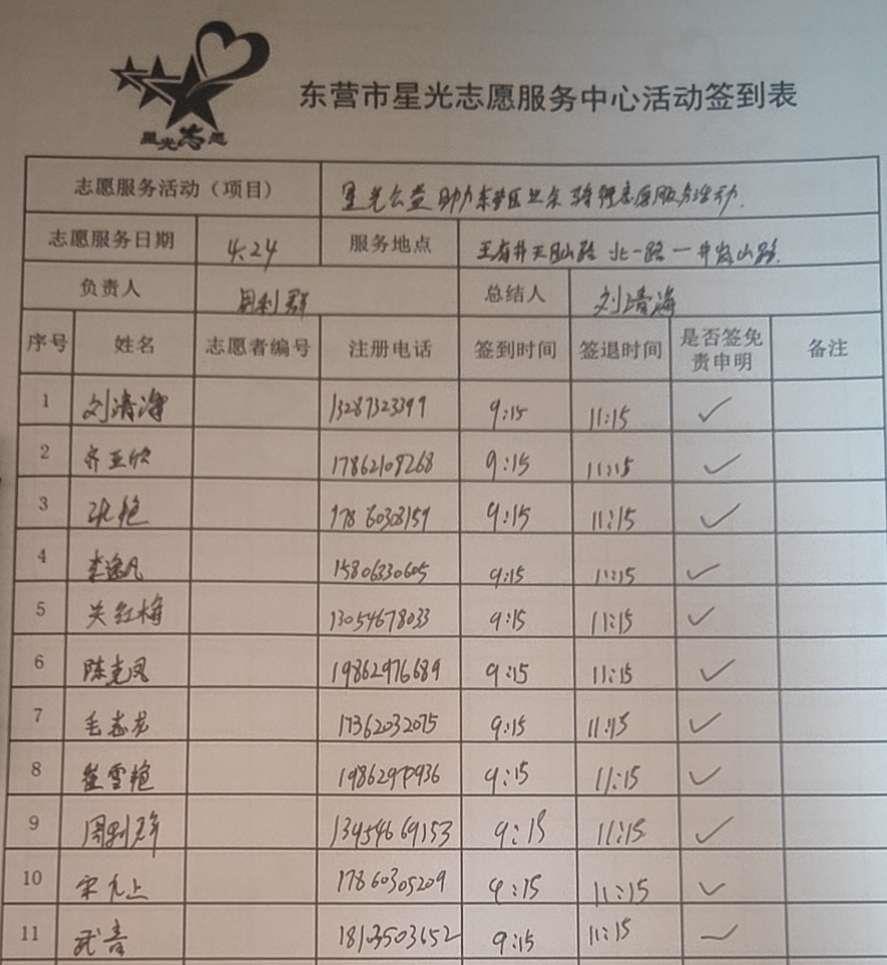 星光志愿
东营市星光志愿服务中心活动签到表
志愿服务活动（项目） 星光公益助力东营区卫东骑行志愿服务活动.
志愿服务日期 4.24 服务地点 天目山路 北一路 井岗山路.
负责人 周利群 总结人 刘清海
序号 姓名 志愿者编号 注册电话 签到时间 签退时间 是否签免责申明 备注
1 刘清海 13287323399 9:15 11:15 ✓
2 齐亚欣 17862109268 9:15 11:15 ✓
3 张艳 17860308159 9:15 11:15 ✓
4 李逸凡 15806330605 9:15 11:15 ✓
5 关红梅 13054678033 9:15 11:15 ✓
6 陈克凤 19862976689 9:15 11:15 ✓
7 毛志龙 17362032075 9:15 11:15 ✓
8 崔雪艳 9:15 11:15 ✓
9 周利群 13954669153 9:15 11:15 ✓
10 宋凡上 17860305209 9:15 11:15 ✓
11 武青 1813503652 9:15 11:15 ✓